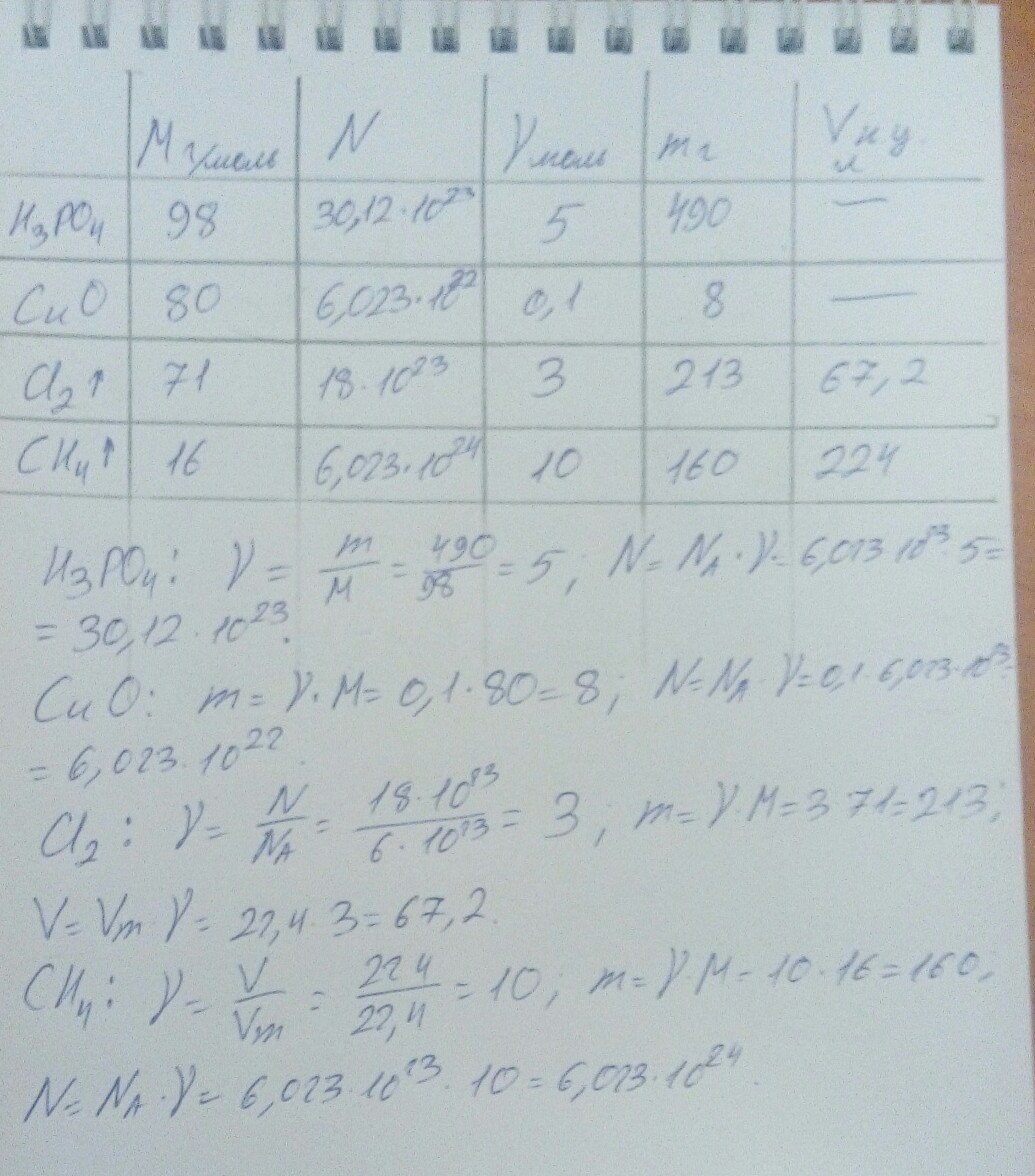 M г/моль N γ моль m г V н.у. л
H₃PO₄ 98 30,12·10²³ 5 490 —
CuO 80 6,023·10²² 0,1 8 —
Cl₂↑ 71 18·10²³ 3 213 67,2
CH₄↑ 16 6,023·10²⁴ 10 160 224
H₃PO₄: γ = m/M = 490/98 = 5; N = N_A·γ = 6,023·10²³·5 =
= 30,12·10²³.
CuO: m = γ·M = 0,1·80 = 8; N = N_A·γ = 0,1·6,023·10²³ =
= 6,023·10²².
Cl₂: γ = N/N_A = 18·10²³/6·10²³ = 3; m = γ·M = 3·71 = 213;
V = Vm·γ = 22,4·3 = 67,2.
CH₄: γ = V/Vm = 224/22,4 = 10; m = γ·M = 10·16 = 160;
N = N_A·γ = 6,023·10²³·10 = 6,023·10²⁴.